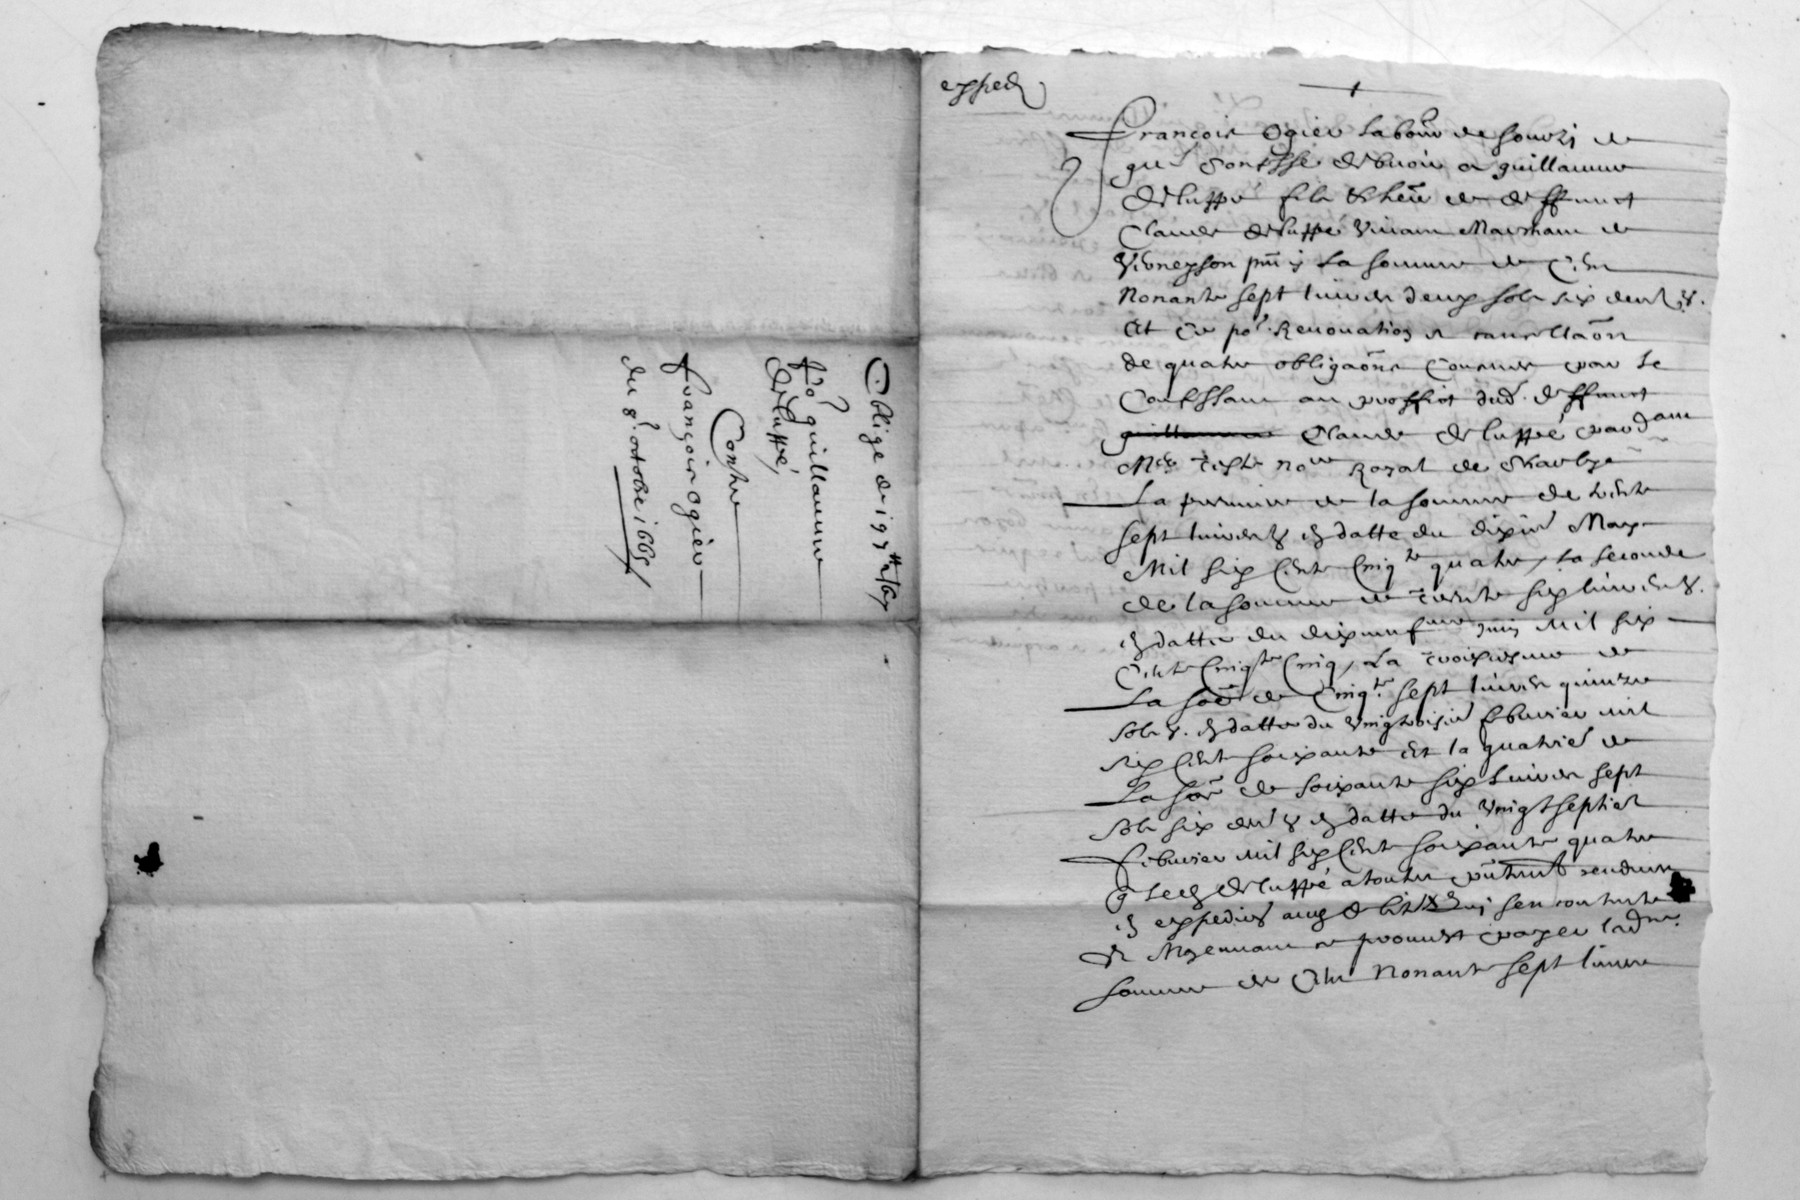 Oblige de 197ᵗᵗ 2ˢ 6ᵈ
Po.ʳ guillaume
Deluppé,
Contre
françois Ogier
du 8ᵉ. octobre 1665
expedié
François Ogier labour de souzi de
gré Confesse debvoir a guillaume
Deluppé fils & here de deffunct
Claude deluppé vivant Marchant de
pnt & La somme de Cent
Nonante sept livres deux sols six den
Et ce po.ʳ Renovation et cancellaon
de quatre obligaons Connues par le
Confessant au proffict dud. deffunct
Claude deluppé pardevant
Mᵉ no.ʳᵉ Royal de
La premiere de la somme de trente
sept livres & en datte du dixie Mars
Mil six Cents Cinq.ᵗᵉ quatre, La seconde
de la somme de trente six livres &.
en datte du dixneufvme juin Mil six
Cents Cinq.ᵗᵉ Cinq, La troisiesme de
La some de Cinq.ᵗᵉ sept livres quinze
sols &. en datte du vingtroisie febvrier mil
six Cents soixante Et la quatrie de
La some de soixante six Livres sept
sols six den & en datte du vingtseptie
febvrier mil six Cents soixante quatre
q led deluppé a rendues
en expedies
Moyennant ce promest payer lad.
somme de Cent Nonante sept livres